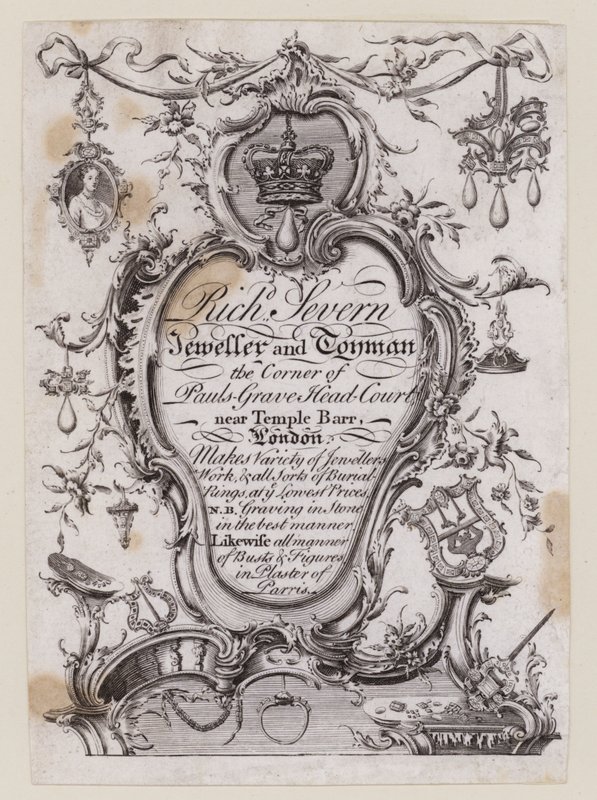 Richd. Severn
Jeweller and Toyman
the Corner of
Pauls-Grave Head-Court
near Temple Barr,
London.
Makes Variety of Jewellers
Work, & all Sorts of Burial
Rings, at ye Lowest Prices,
N.B. Graving in Stone
in the best manner
Likewise all manner
of Busts & Figures
in Plaster of
Parris.